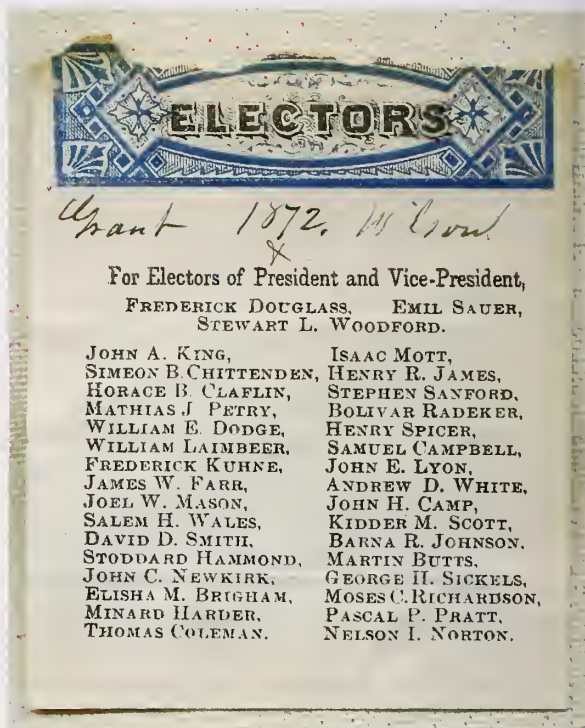 ELECTORS
Grant 1872. Wilson
&
For Electors of President and Vice-President,
FREDERICK DOUGLASS, EMIL SAUER,
STEWART L. WOODFORD.
JOHN A. KING,
SIMEON B. CHITTENDEN,
HORACE B. CLAFLIN,
MATHIAS J. PETRY,
WILLIAM E. DODGE,
WILLIAM LAIMBEER,
FREDERICK KUHNE,
JAMES W. FARR,
JOEL W. MASON,
SALEM H. WALES,
DAVID D. SMITH,
STODDARD HAMMOND,
JOHN C. NEWKIRK,
ELISHA M. BRIGHAM,
MINARD HARDER,
THOMAS COLEMAN.
ISAAC MOTT,
HENRY R. JAMES,
STEPHEN SANFORD,
BOLIVAR RADEKER,
HENRY SPICER,
SAMUEL CAMPBELL,
JOHN E. LYON,
ANDREW D. WHITE,
JOHN H. CAMP,
KIDDER M. SCOTT,
BARNA R. JOHNSON,
MARTIN BUTTS,
GEORGE H. SICKELS,
MOSES C. RICHARDSON,
PASCAL P. PRATT,
NELSON I. NORTON.